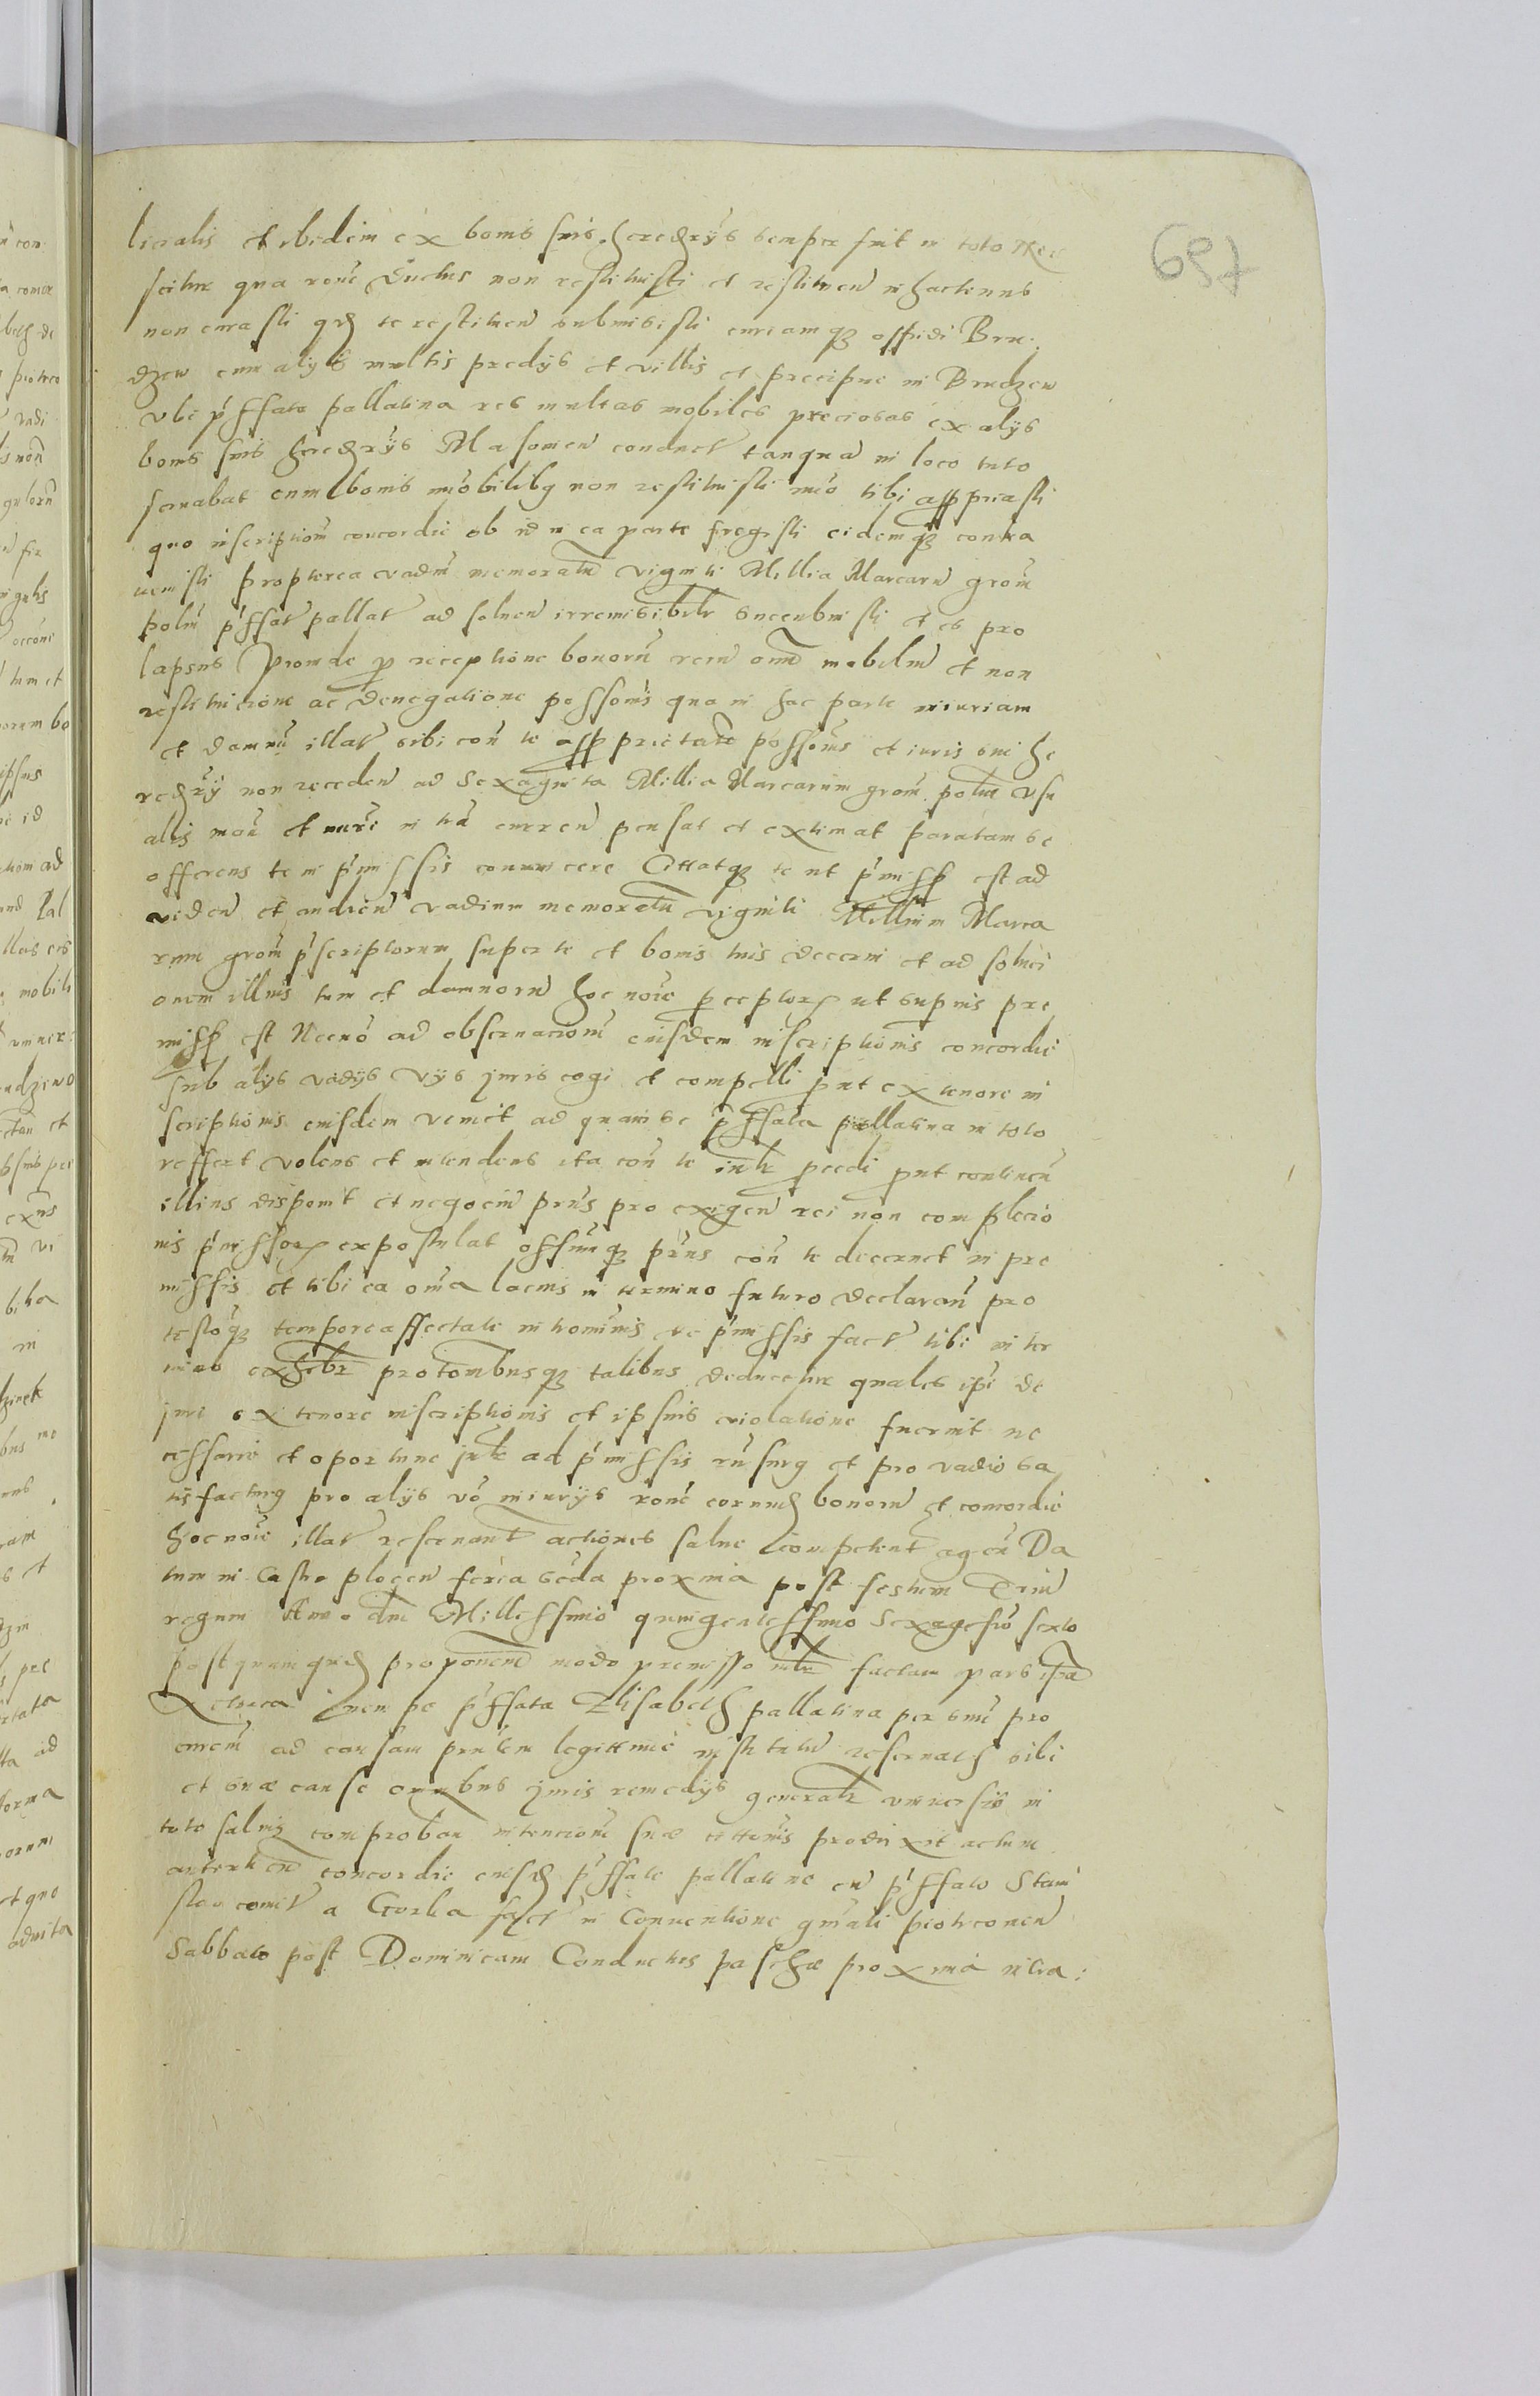 697
licialis et ibidem ex bonis suis heredrÿs semper fuit in toto
scitur qua rone ductus non restituisti et restituen in hactenus
non curasti qd te restituen submisisti curiamqz oppidi Bru
dzew cum alÿs multis predÿs et villis et precipue in Brudzew
vbi pffata pallatina res multas mobiles preciosas ex alÿs
bonis suis heredrÿs Masouien conduct tanqua in loco tuto
seruabat cum bonis mobilibq non restituisti imo tibi appriasti
quo inscriptiom concordie ob id in ea parte fregisti eidemqz contra
uenisti propterea vadm memoratu viginti Millia Marcaru grom
polm pffat pallat ad soluen irremisibilr sucubuisti et es pro
lapsus Proinde p receptione bonoru reru omm mobiliu et non
restitucione ac denegatione possonis qua in hac parte iniuriam
et damnu illat sibi con te appprietate possonis et iuris sui he
redrÿ non receden ad Sexaginta Millia Marcarum grom polm usu
alis mon et nuri in tra curren pensat et extimat paratam se
offerens te in pmissis conuincere Cittatqz te ut pmiss est ad
viden et audien vadium memoratu viginti Millium Marca
rum grom pscriptorum super te et bonis tuis decerni et ad soluci
onem illius tum et damnoru hoc noie pceptorz ut supius pre
miss est Necno ad obseruaciom eiusdem inscriptionis concordie
sub alÿs vadÿs vÿs juris cogi et compelli put ex tenore in
scriptionis eiusdem venit ad quam se pffata pallatina in toto
reffert volens et intendens ita con te intr pcedi put continen
illius disponit et negociu prius pro exigen rei non complecio
nis pmissorz expostulat offumqz prius con te decernet in pre
missis et tibi ea oma lacius in termino futuro declaran pro
testoqz tempore affectate in homines de pmissis fact tibi in ter
mino exhibr protombusqz talibus deducetur quales ipi de
jure ex tenore inscriptionis et ipsius violatione fuerint ne
cessarie et oportune jntr ad pmissis rusurq et pro vadio sa
tisfacturq pro alÿs vo iniurÿs rone eorumd bonoru et concordie
hoc noie illat reseruant actiones salue competent agen Da
tum in Castro plocen feria scda proxima post festum Triu
regum Anno dni Millessimo quingentessimo Sexagesio sexto
postquamquid proponem modo premisso factam pars ipa
Actorea nempe pffata Elisabeth pallatina per suu pro
curem ad causam pntem legittime institutu reseruatis sibi
et suae cause omnibus juris remedÿs generalr vniuersis in
toto saluis comproban intenciom sue cittonis produxit actum
autenticu concordie eiusd pffate pallatine cu pffato Stani
slao comit a Gorka fact in Conuentione gnali piotrconien
Sabbato post Dominicam Conductus paschae proxima intra: